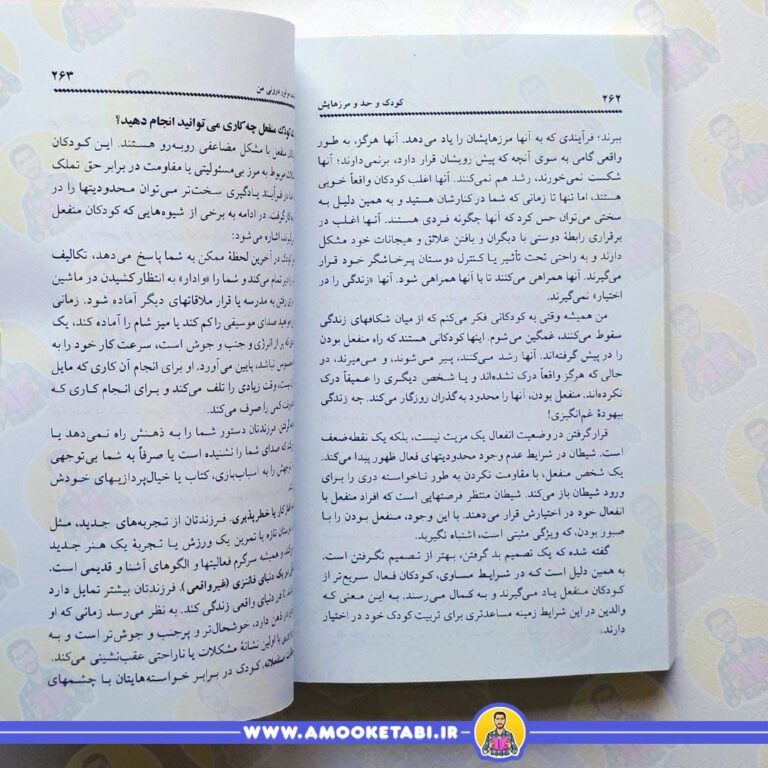 ۲۶۲
کودک و حد و مرزهایش
ببرند؛ فرآیندی که به آنها مرزهایشان را یاد می‌دهد. آنها هرگز، به طور
واقعی گامی به سوی آنچه که پیش رویشان قرار دارد، برنمی‌دارند؛ آنها
شکست نمی‌خورند، رشد هم نمی‌کنند. آنها اغلب کودکان واقعاً خوبی
هستند، اما تنها تا زمانی که شما در کنارشان هستید و به همین دلیل به
سختی می‌توان حس کرد که آنها چگونه فردی هستند. آنها اغلب در
برقراری رابطهٔ دوستی با دیگران و یافتن علائق و هیجانات خود مشکل
دارند و به راحتی تحت تأثیر یا کنترل دوستان پرخاشگر خود قرار
می‌گیرند. آنها همراهی می‌کنند تا با آنها همراهی شود. آنها «زندگی را در
اختیار» نمی‌گیرند.
من همیشه وقتی به کودکانی فکر می‌کنم که از میان شکافهای زندگی
سقوط می‌کنند، غمگین می‌شوم. اینها کودکانی هستند که راه منفعل بودن
را در پیش گرفته‌اند. آنها رشد می‌کنند، پیر می‌شوند، و می‌میرند، در
حالی که هرگز واقعاً درک نشده‌اند و یا شخص دیگری را عمیقاً درک
نکرده‌اند. منفعل بودن، آنها را محدود به گذران روزگار می‌کند. چه زندگی
بیهودهٔ غم‌انگیزی!
قرار گرفتن در وضعیت انفعال یک مزیت نیست، بلکه یک نقطه‌ضعف
است. شیطان در شرایط عدم وجود محدودیتهای فعال ظهور پیدا می‌کند.
یک شخص منفعل، با مقاومت نکردن به طور ناخواسته دری را برای
ورود شیطان باز می‌کند. شیطان منتظر فرصتهایی است که افراد منفعل با
انفعال خود در اختیارش قرار می‌دهند. با این وجود، منفعل بودن را با
صبور بودن، که ویژگی مثبتی است، اشتباه نگیرید.
گفته شده که یک تصمیم بد گرفتن، بهتر از تصمیم نگرفتن است.
به همین دلیل است که در شرایط مساوی، کودکان فعال سریع‌تر از
کودکان منفعل یاد می‌گیرند و به کمال می‌رسند. به این معنی که
والدین در این شرایط زمینه مساعدتری برای تربیت کودک خود در اختیار
دارند.
۲۶۳
درونی من
کودک منفعل چه کاری می‌توانید انجام دهید؟
منفعل با مشکل مضاعفی روبه‌رو هستند. این کودکان
مربوط به مرز بی‌مسئولیتی یا مقاومت در برابر حق تملک
در فرآیند یادگیری سخت‌تر می‌توان محدودیتها را در
گرفت. در ادامه به برخی از شیوه‌هایی که کودکان منفعل
اشاره می‌شود:
در آخرین لحظهٔ ممکن به شما پاسخ می‌دهد، تکالیف
تمام می‌کند و شما را «وادار» به انتظار کشیدن در ماشین
رفتن به مدرسه یا قرار ملاقاتهای دیگر آماده شود. زمانی
صدای موسیقی را کم کند یا میز شام را آماده کند، یک
پر از انرژی و جنب و جوش است، سرعت کار خود را به
پایین می‌آورد. او برای انجام آن کاری که مایل
وقت زیادی را تلف می‌کند و برای انجام کاری که
کمی را صرف می‌کند.
گرفتن. فرزندتان دستور شما را به ذهنش راه نمی‌دهد یا
که صدای شما را نشنیده است یا صرفاً به شما بی‌توجهی
را به اسباب‌بازی، کتاب یا خیال‌پردازیهای خودش
خطرپذیری. فرزندتان از تجربه‌های جدید، مثل
تازه یا تمرین یک ورزش یا تجربهٔ یک هنر جدید
و همیشه سرگرم فعالیتها و الگوهای آشنا و قدیمی است.
یک دنیای فانتزی (غیرواقعی). فرزندتان بیشتر تمایل دارد
تا در دنیای واقعی زندگی کند. به نظر می‌رسد زمانی که او
در ذهن دارد، خوشحال‌تر و پرجنب و جوش‌تر است و به
اولین نشانهٔ مشکلات یا ناراحتی عقب‌نشینی می‌کند.
منفعلانه. کودک در برابر خواسته‌هایتان با چشمهای
WWW.AMOOKETABI.IR